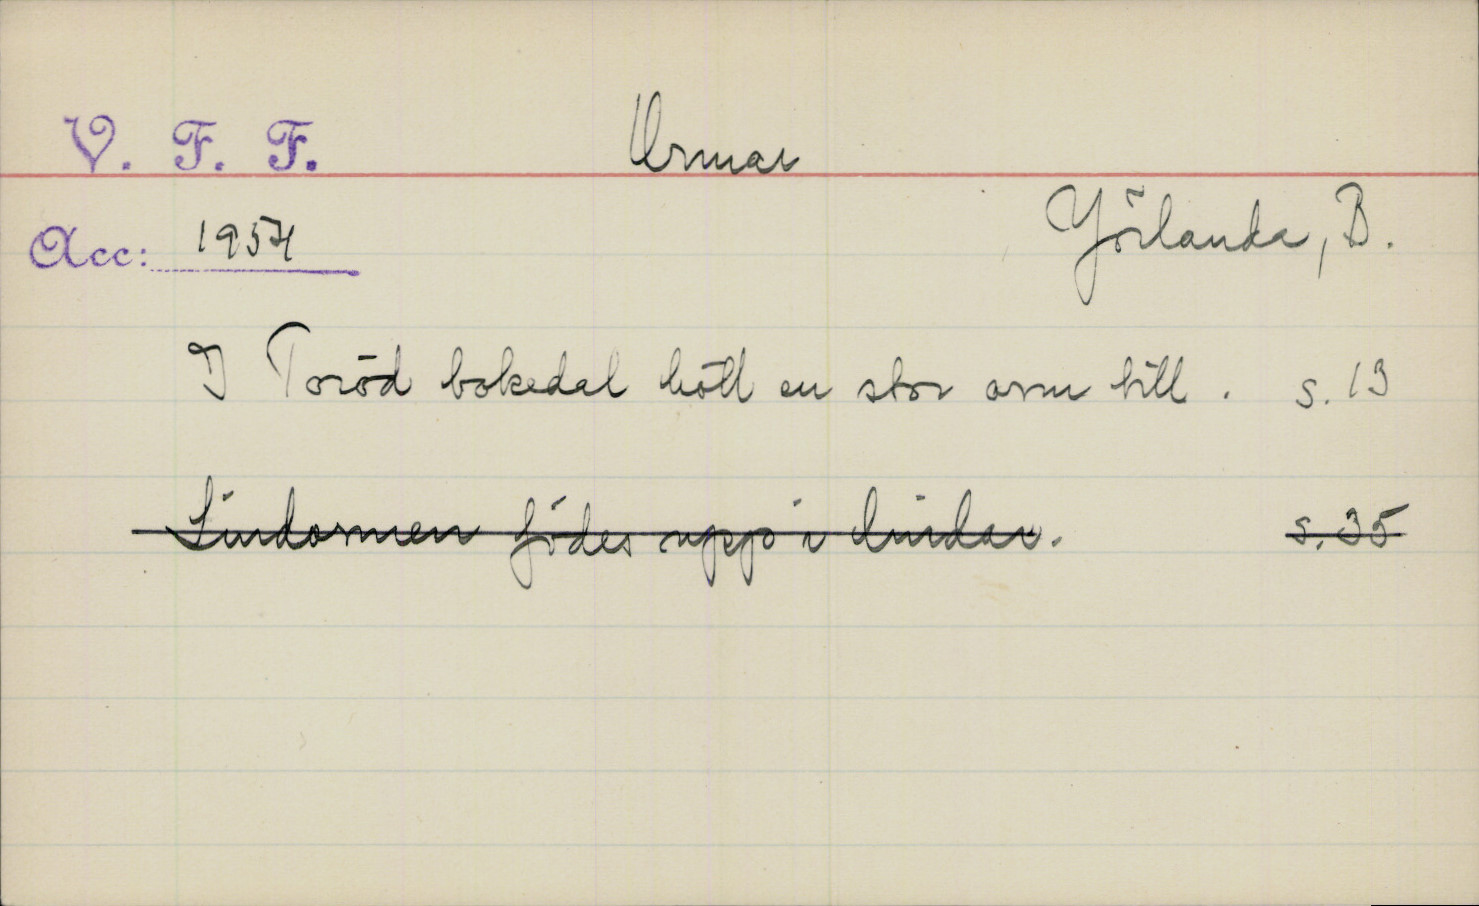 V. F. F. Ormar
Acc: 1954 Jörlanda, B.
I Toröd bokedal höll en stor orm till. s. 13
Lindormen födes upp i lindar. s. 35